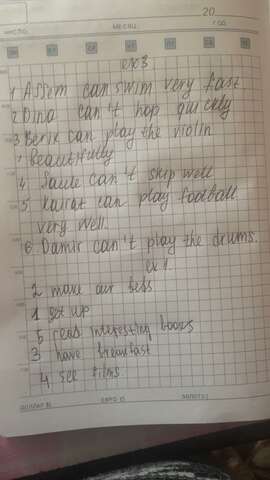 20
ЧИСЛО
МЕСЯЦ
ГОД
ex 3
1 Assem can swim very fast.
2 Dina can't hop quickly
3 Berik can play the violin
beautifully
4 Saule can't skip well
5 Kairat can play football
very well.
6 Damir can't play the drums.
ex 1.
2 make our beds
1 get up
5 read interesting books
3 have breakfast
4 see films